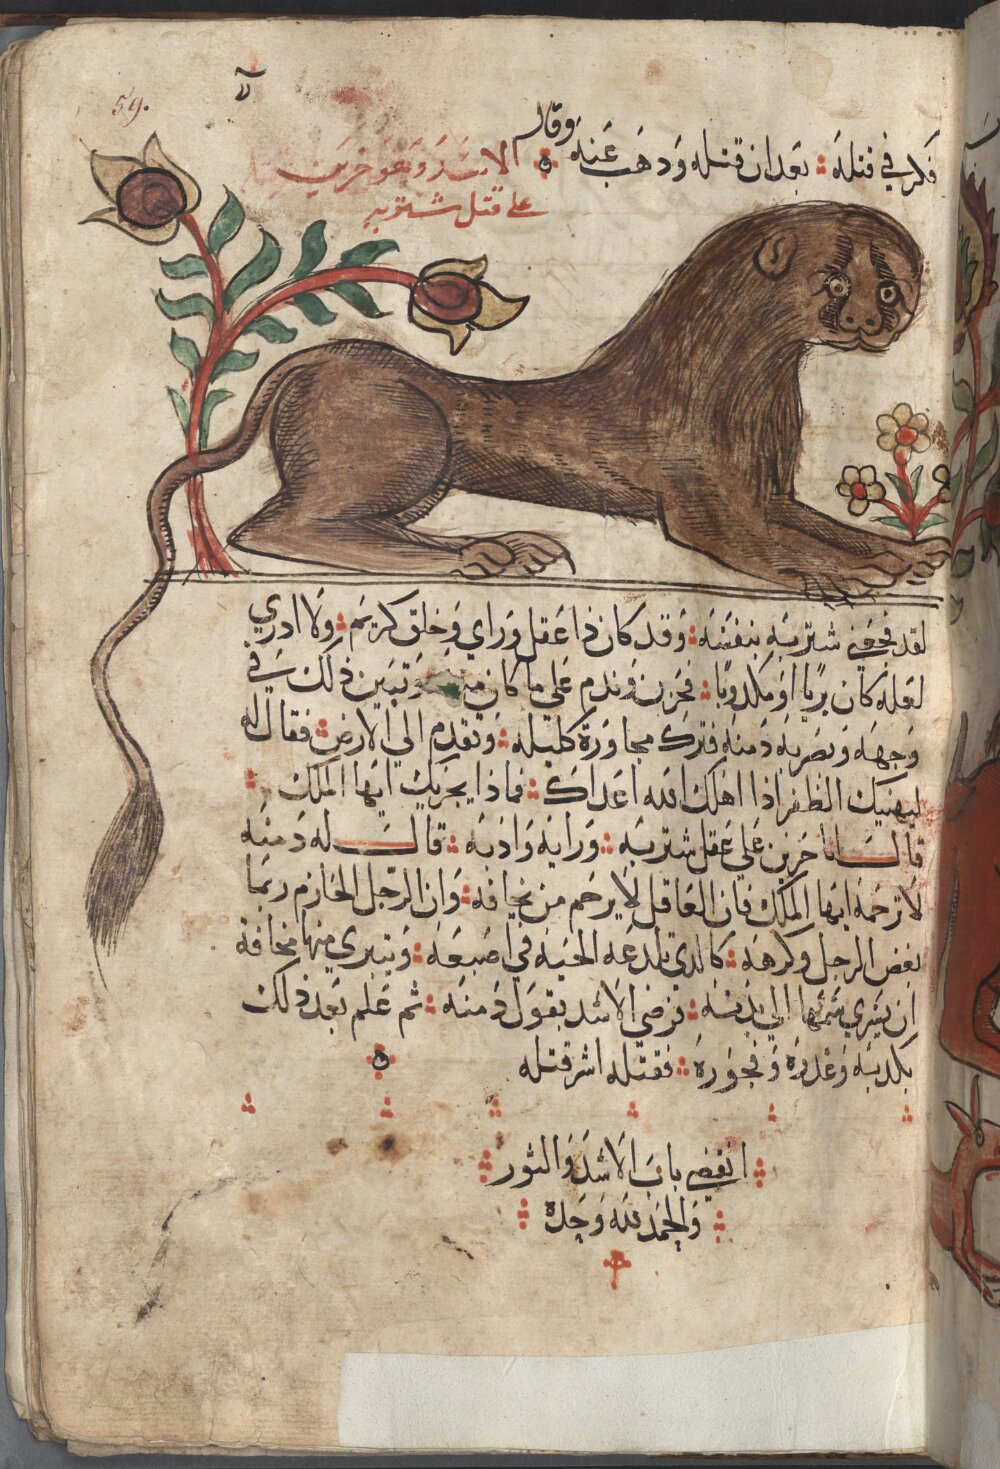 59.
وقال
فكر في قتله ؞ بعد ان قتله وذهب عنه
الاسد وهو حزين
على قتل شتربه
لقد فجعني شتربه بنفسه ؞ وقد كان ذا عقل وراي وخلق كريم ؞ ولا ادري
لعله كان بريا او مكدوبا ؞ فحزن وندم على ما كان وتبين ذلك في
وجهه وبصر به دمنه فترك مجاورة كليله ؞ وتقدم الي الارض ؞ فقال له
ليهنيك الظفر اذا اهلك الله اعداك ؞ فماذا يحزنك ايها الملك ؞
قال انا حزين علي عقل شتربه ؞ ورايه وادبه ؞ قال له دمنه
لا ترحمه ايها الملك فان العاقل لا يرحم من يخافه ؞ وان الرجل الحازم ربما
بغض الرجل وكرهه ؞ كالدي تلدعه الحيه في اصبعه ؞ ويتبري منها مخافة
ان يسري سمها الي بدنه ؞ فرضي الاسد بقول دمنه ؞ ثم علم بعد ذلك
بكدبه وغدره وفجوره ؞ فقتله اشر قتله
انقضي باب الاسد والثور
والحمد لله وحده